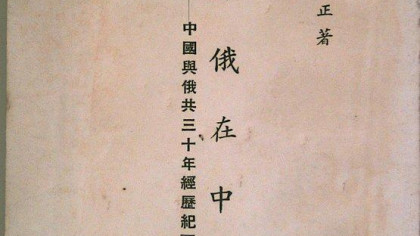 正著
俄在中
中國與俄共三十年經歷紀